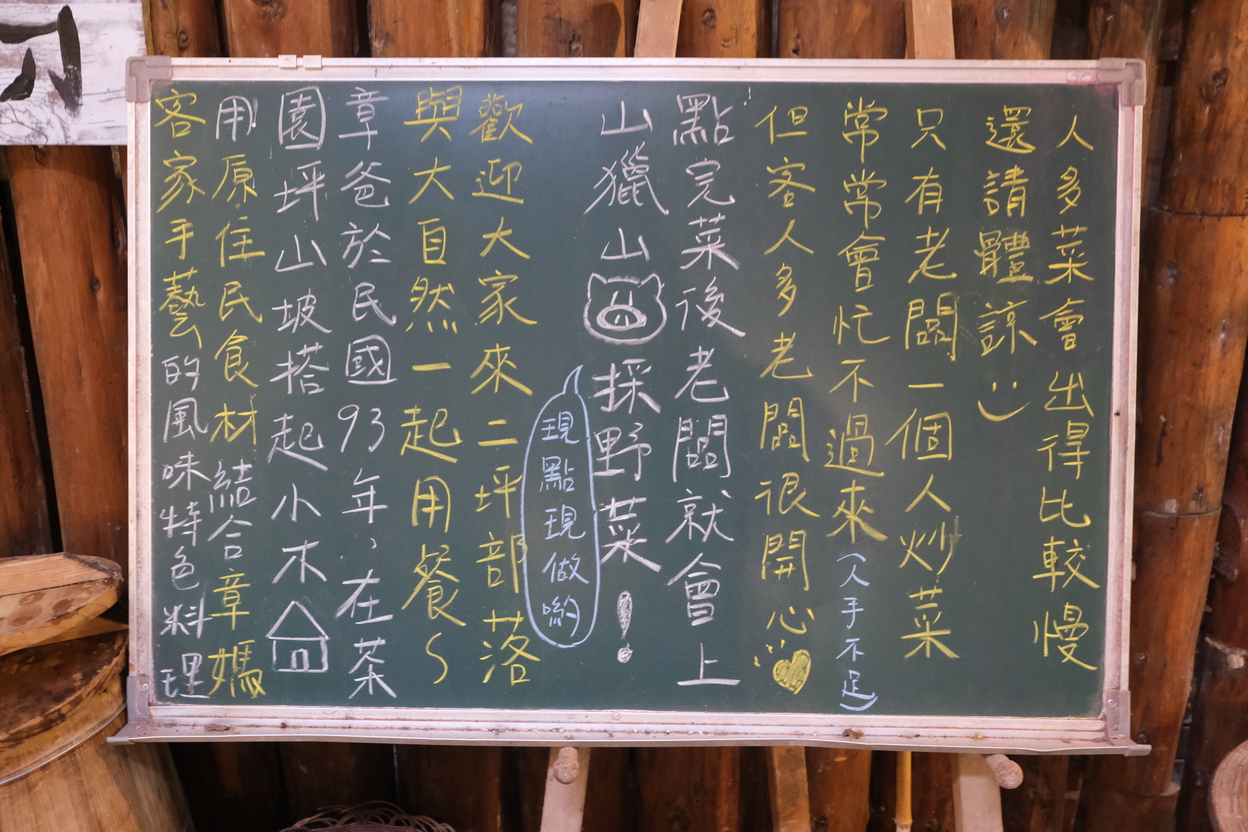 人多菜會出得比較慢
還請體諒
只有老闆一個人炒菜
常常會忙不過來(人手不足)
但客人多老闆很開心
點完菜後老闆就會上
山獵山採野菜!
現點現做喲
歡迎大家來二坪部落
與大自然一起用餐~
章爸於民國93年,在茶
園坪山坡搭起小木
用原住民食材結合章媽
客家手藝的風味特色料理